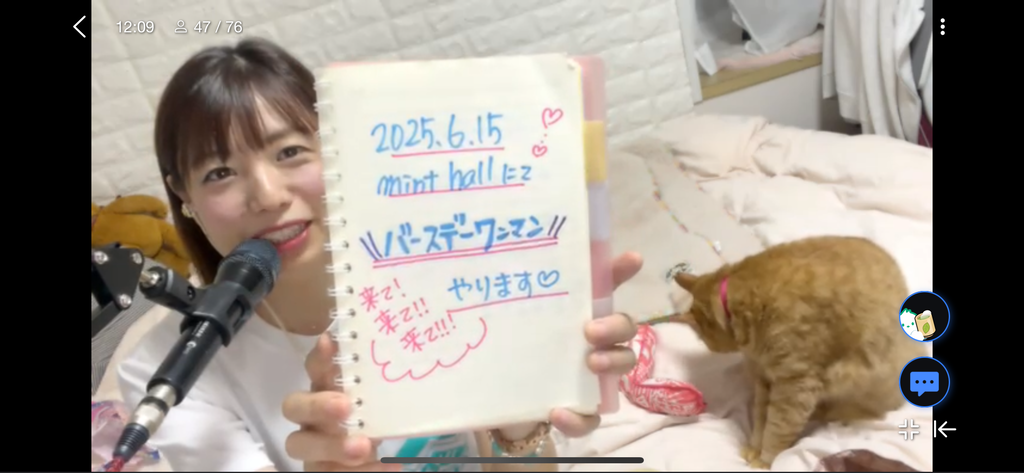 12:09
47 / 76
2025.6.15
mint hallにて
\\バースデーワンマン//
やります♡
来て!
来て!!
来て!!!